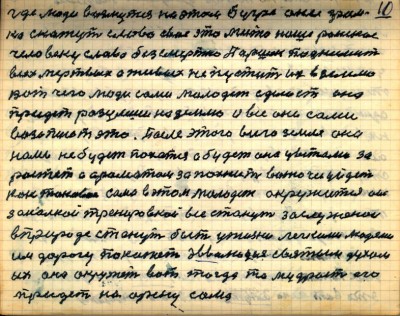 где люди возмутся на этом Бугре они гром- 10
ко скажут слова свое это место наше райское
человеку слава бессмертно Паршек поднимит
всех мертвых а живых не пустит их в землю
вот чего люди сами молодет сделают она
придет разумении на землю и все они сами
возьпишат это. После этого всего земля она
нами не будит пахатся а будет она цветами за
растет а ароматом запохнить воно че уйдет
как таковое само в этом молодец окружится он
закалкой тренировкой все станут заслуженой
в природе станут быть ужони легкими людеми
им дорогу покажет Эвванодья святым духом
их она окружет вот тогда то мудрость его
придет на арену сама